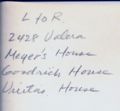 L to R
2428 Valera
Meyer's House
Goodrich House
Uritas House